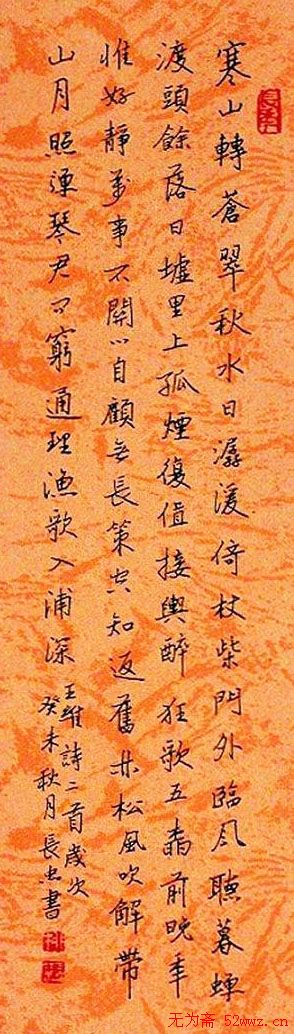 寒山轉蒼翠秋水日潺湲倚杖柴門外臨風聽暮蟬
渡頭餘落日墟里上孤煙復值接輿醉狂歌五柳前晚年
惟好靜萬事不關心自顧無長策空知返舊林松風吹解帶
山月照彈琴君問窮通理漁歌入浦深
王維詩二首歲次
癸未秋月長忠書
无为斋 52wwz.cn